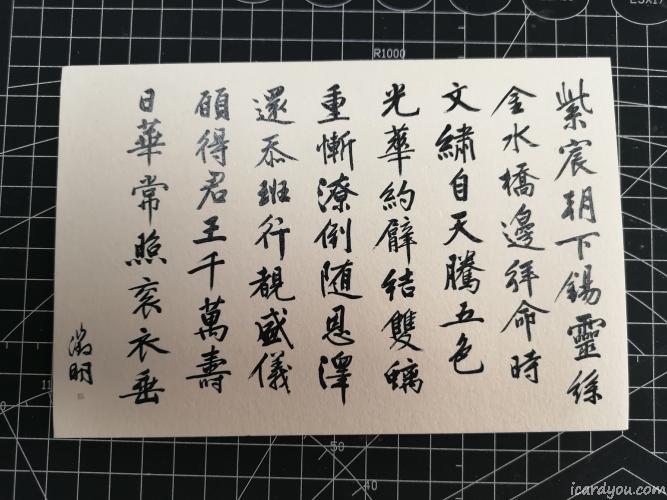 紫宸朝下錫靈絲
金水橋邊拜命時
文繡自天騰五色
光華約臂結雙螭
重慚潦倒随恩澤
還忝班行覩盛儀
願得君王千萬壽
日華常照袞衣垂
徵明
R1000
50
40
icardyou.com